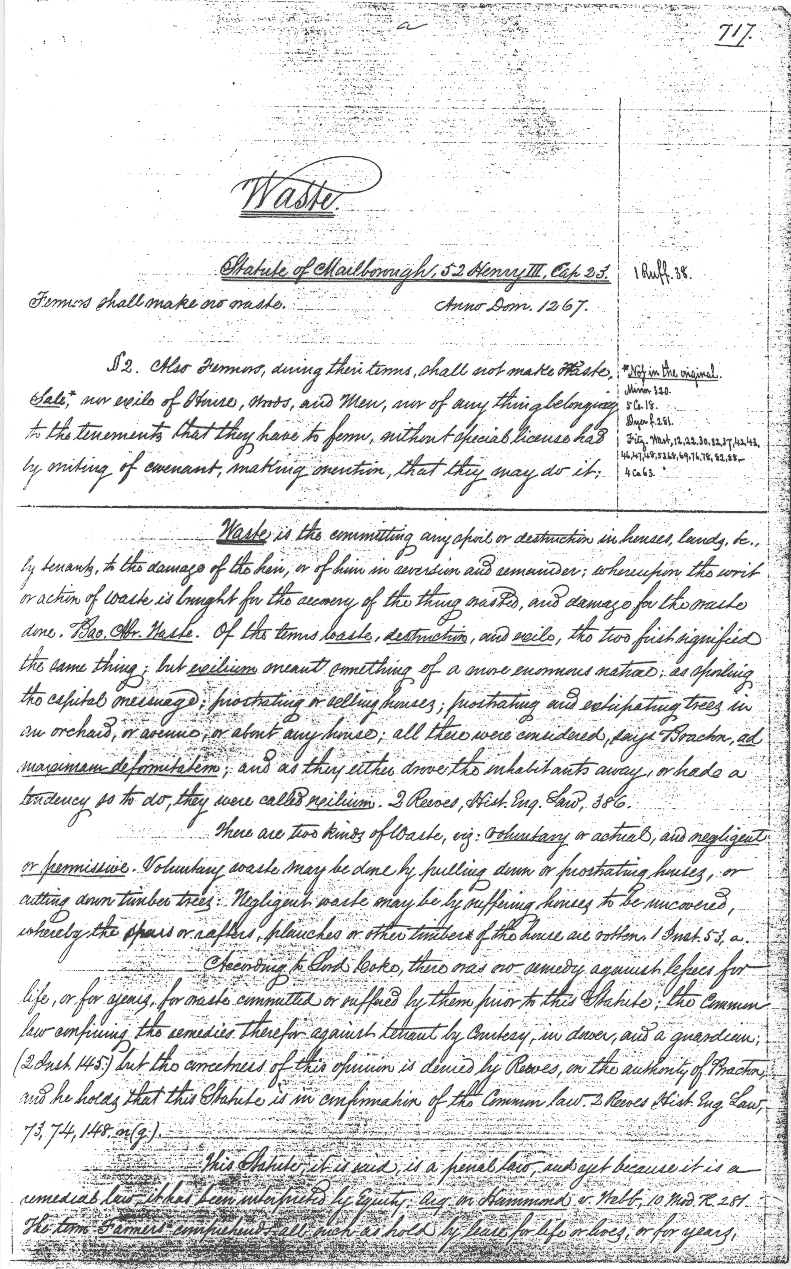 a
717.
Waste.
Statute of Marlborough, 52 Henry III, Cap 23.
1 Ruff. 38.
Fermors shall make no waste. Anno Dom. 1267.
§2. Also Fermors, during their terms, shall not make Waste,
Sale,* nor exile of House, woods, and Men, nor of any thing belonging
to the tenements that they have to ferm, without special license had
by writing of covenant, making mention, that they may do it;
*Not in the original.
Mirror 320.
5 Co. 18.
Dyer f. 281.
Fitz. Wast, 12, 22, 30, 32, 37, 42, 43,
46, 47, 48, 52, 68, 69, 76, 78, 82, 88,–
4 Co. 63.
Waste is the committing any spoil or destruction in houses, lands, &c.,
by tenants, to the damage of the heir, or of him in reversion and remainder; whereupon the writ
or action of waste is brought for the recovery of the thing wasted, and damage for the waste
done. Bac. Abr. Waste. Of the terms waste, destruction, and exile, the two first signified
the same thing; but exilium meant something of a more enormous nature; as spoiling
the capital messuage; prostrating or selling houses; prostrating and extirpating trees in
an orchard, or avenue, or about any house; all these were considered, says Bracton, ad
maximam deformitatem; and as they either drove the inhabitants away, or had a
tendency so to do, they were called exilium. 2 Reeves, Hist. Eng. Law, 386.
There are two kinds of Waste, viz: voluntary or actual, and negligent
or permissive. Voluntary waste may be done by pulling down or prostrating houses, or
cutting down timber trees: Negligent waste may be by suffering houses to be uncovered,
whereby the spars or rafters, planches or other timbers of the house are rotten. 1 Inst. 53, a.
According to Lord Coke, there was no remedy against lessees for
life, or for years, for waste committed or suffered by them prior to this Statute; the Common
law confining the remedies therefor against tenant by Courtesy, in dower, and a guardian;
(2 Inst. 145) but the correctness of this opinion is denied by Reeves, on the authority of Bracton,
and he holds that this Statute is in confirmation of the Common law. 2 Reeves Hist. Eng. Law,
73, 74, 148. n(g).
This Statute, it is said, is a penal law, and yet because it is a
remedial law, it has been interpreted by Equity. Arg. in Hammond v. Webb, 10 Mod. R. 281.
The term Farmers comprehends all such as hold by lease for life or lives, or for years,